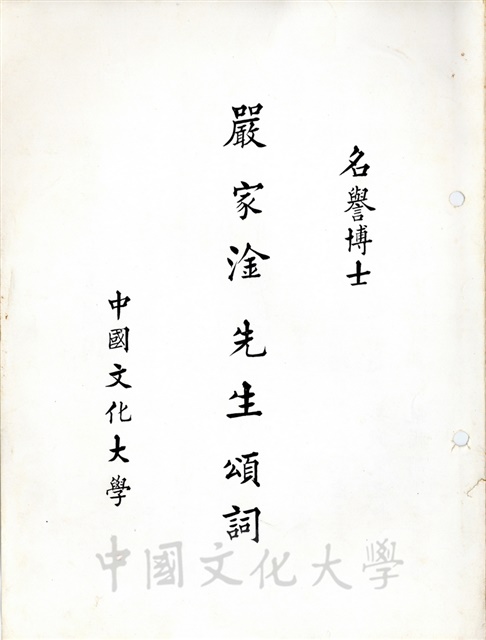 名譽博士
嚴家淦先生頌詞
中國文化大學
中國文化大學